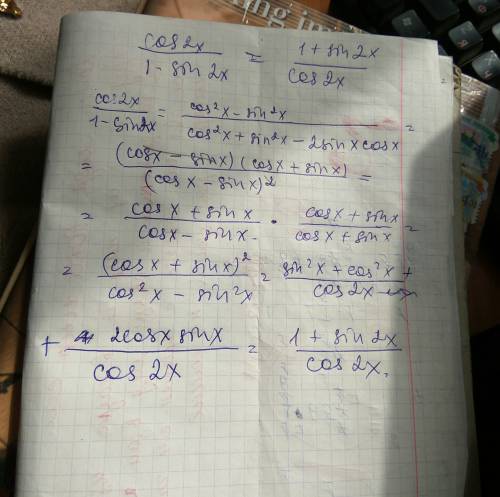 cos2x / 1 - sin 2x = 1 + sin 2x / cos 2x
cos2x / 1 - sin2x = cos²x - sin²x / cos²x + sin²x - 2sin x cosx =
= (cosx - sinx) (cosx + sinx) / (cosx - sinx)² =
= cosx + sinx / cosx - sinx · cosx + sinx / cosx + sinx =
= (cosx + sinx)² / cos²x - sin²x = sin²x + cos²x / cos2x +
+ 2cosx sinx / cos 2x = 1 + sin 2x / cos 2x.